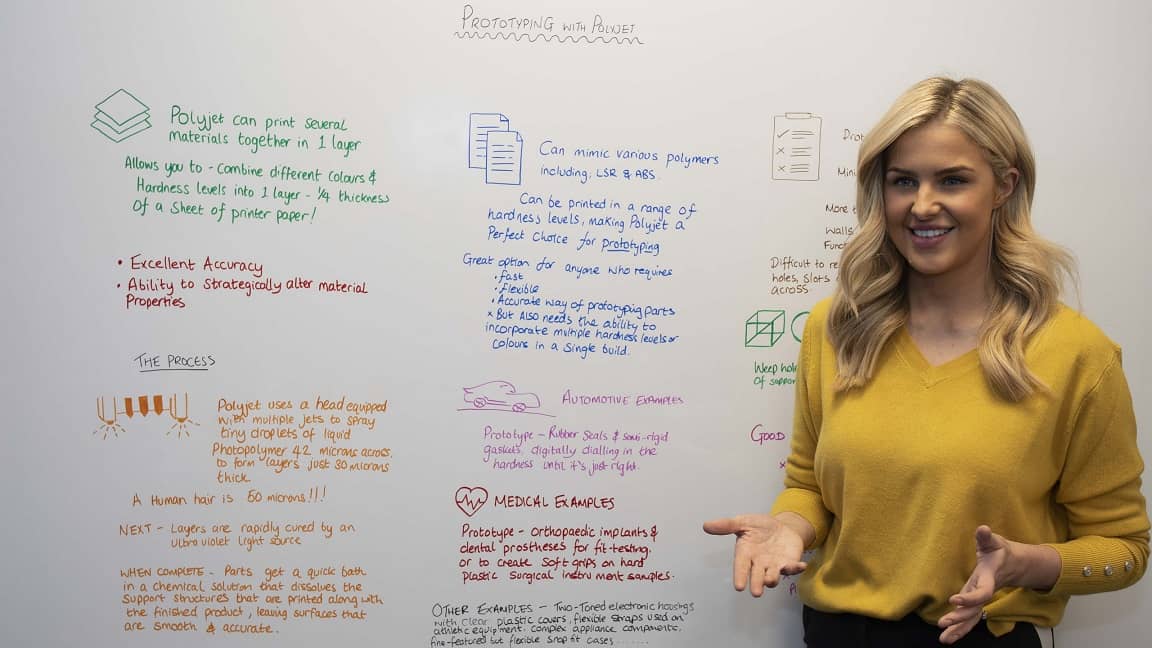 PROTOTYPING WITH POLYJET
Polyjet can print several
materials together in 1 layer
Allows you to - Combine different colours &
Hardness levels into 1 layer - 1/4 thickness
Of a Sheet of printer paper!
• Excellent Accuracy
• Ability to Strategically alter material
Properties
THE PROCESS
Polyjet uses a head equipped
with multiple jets to spray
tiny droplets of liquid
Photopolymer 42 microns across,
to form layers just 30 microns
thick.
A Human hair is 50 microns!!!
NEXT - Layers are rapidly cured by an
ultra violet light source
WHEN COMPLETE - Parts get a quick bath
in a chemical solution that dissolves the
Support structures that are printed along with
the finished product, leaving surfaces that
are smooth & accurate.
Can mimic various polymers
including; LSR & ABS.
Can be printed in a range of
hardness levels, making Polyjet a
Perfect Choice for prototyping
Great option for anyone who requires
• fast
• flexible
• Accurate way of prototyping parts
x But ALSO needs the ability to
incorporate multiple hardness levels or
Colours in a Single build.
AUTOMOTIVE EXAMPLES
Prototype - Rubber Seals & semi-rigid
gaskets, digitally dialling in the
hardness until it's just right.
MEDICAL EXAMPLES
Prototype - Orthopaedic implants &
dental prostheses for fit-testing.
or to create Soft grips on hard
plastic Surgical instrument samples.
OTHER EXAMPLES - Two-Toned electronic housings
with clear plastic covers, flexible straps used on
athletic equipment. complex appliance components,
fine-featured but flexible Snap fit cases.......
More
walls
Difficult to
holes, slots
across.
Weep
Of
GOOD